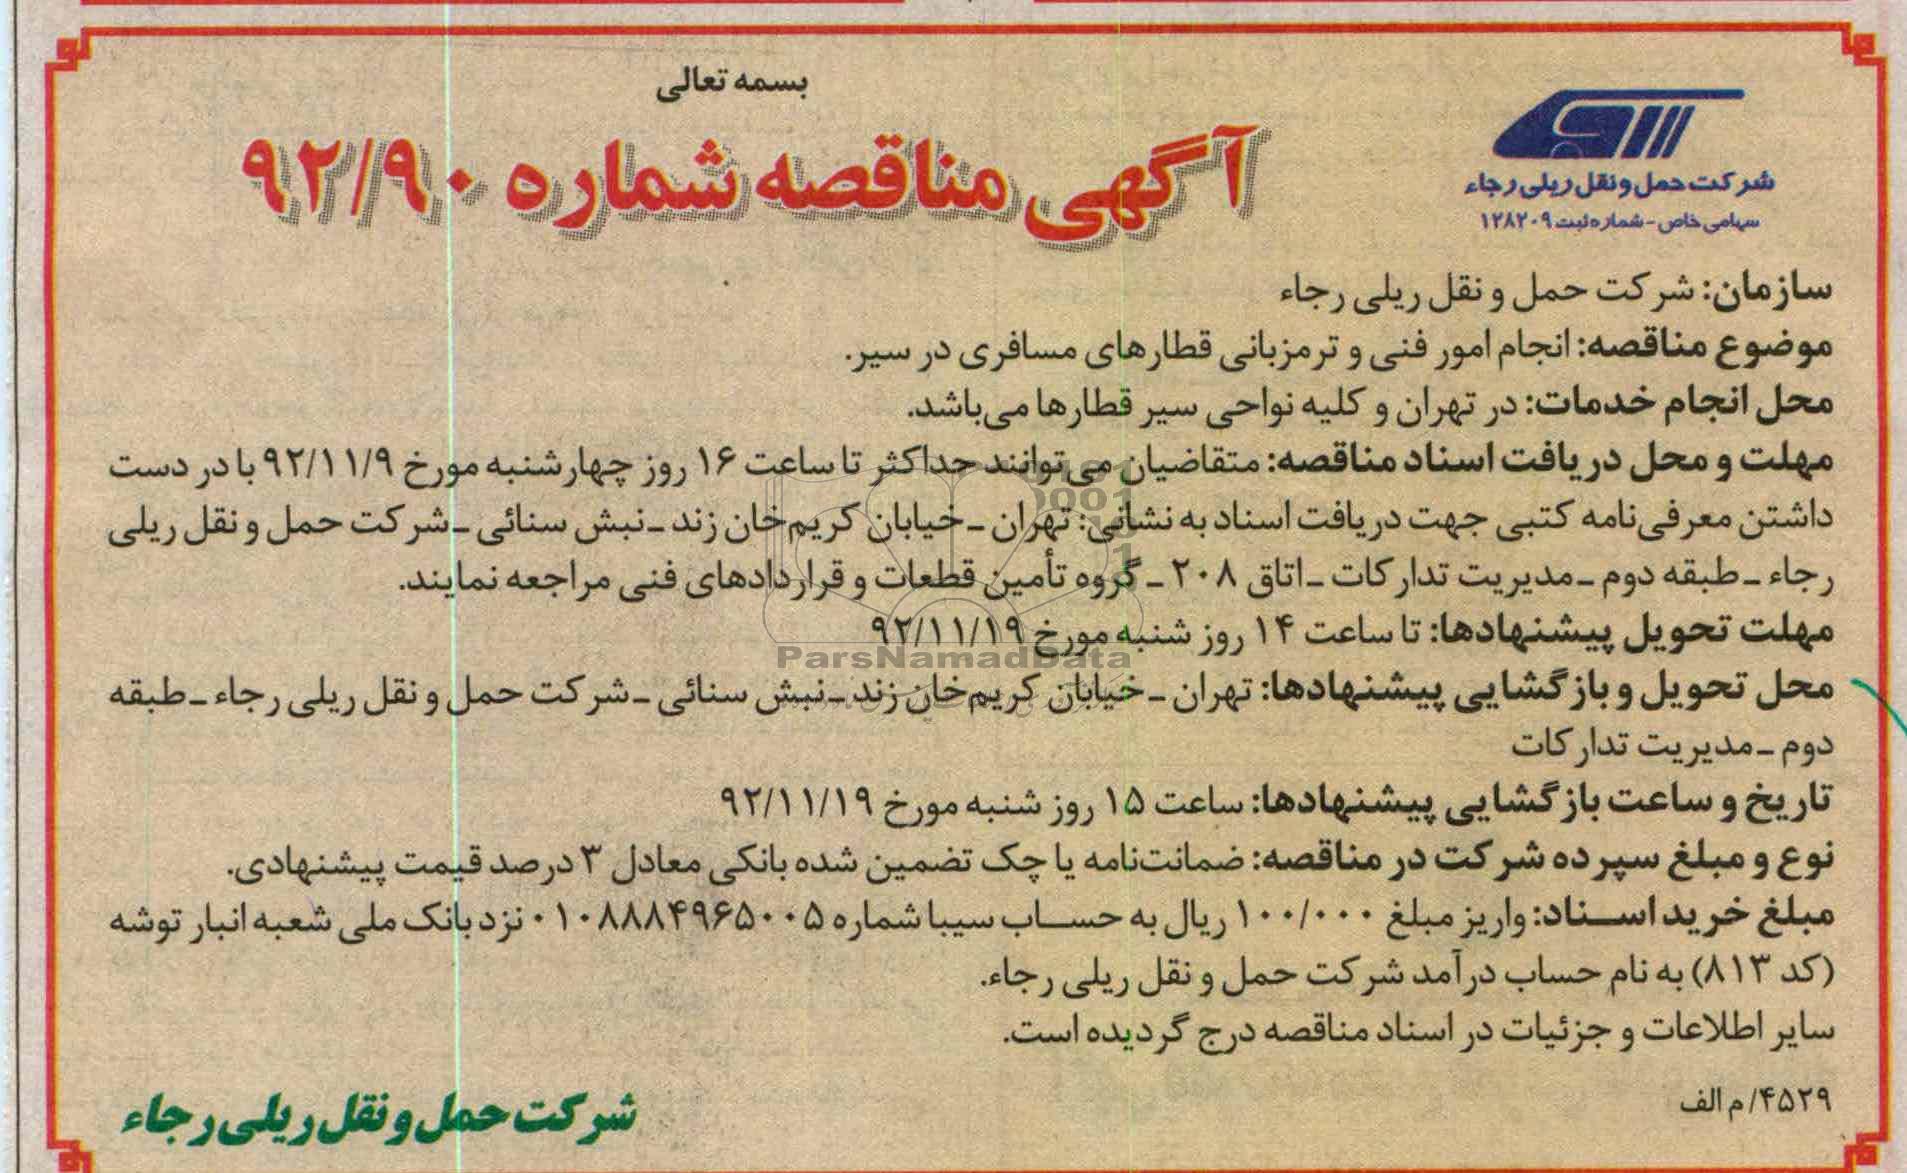 بسمه تعالی
آگهی مناقصه شماره ۹۲/۹۰
شرکت حمل و نقل ریلی رجاء
سهامی خاص - شماره ثبت ۱۲۸۲۰۹
سازمان: شرکت حمل و نقل ریلی رجاء
موضوع مناقصه: انجام امور فنی و ترمزبانی قطارهای مسافری در سیر.
محل انجام خدمات: در تهران و کلیه نواحی سیر قطارها می‌باشد.
مهلت و محل دریافت اسناد مناقصه: متقاضیان می‌توانند حداکثر تا ساعت ۱۶ روز چهارشنبه مورخ ۹۲/۱۱/۹ با در دست
داشتن معرفی‌نامه کتبی جهت دریافت اسناد به نشانی: تهران ـ خیابان کریم‌خان زند ـ نبش سنائی ـ شرکت حمل و نقل ریلی
رجاء ـ طبقه دوم ـ مدیریت تدارکات ـ اتاق ۲۰۸ ـ گروه تأمین قطعات و قراردادهای فنی مراجعه نمایند.
مهلت تحویل پیشنهادها: تا ساعت ۱۴ روز شنبه مورخ ۹۲/۱۱/۱۹
ParsNamadData
محل تحویل و بازگشایی پیشنهادها: تهران ـ خیابان کریم‌خان زند ـ نبش سنائی ـ شرکت حمل و نقل ریلی رجاء ـ طبقه
دوم ـ مدیریت تدارکات
تاریخ و ساعت بازگشایی پیشنهادها: ساعت ۱۵ روز شنبه مورخ ۹۲/۱۱/۱۹
نوع و مبلغ سپرده شرکت در مناقصه: ضمانت‌نامه یا چک تضمین شده بانکی معادل ۳ درصد قیمت پیشنهادی.
مبلغ خرید اسناد: واریز مبلغ ۱۰۰/۰۰۰ ریال به حساب سیبا شماره ۰۱۰۸۸۸۴۹۶۵۰۰۵ نزد بانک ملی شعبه انبار توشه
(کد ۸۱۳) به نام حساب درآمد شرکت حمل و نقل ریلی رجاء.
سایر اطلاعات و جزئیات در اسناد مناقصه درج گردیده است.
۴۵۲۹/م الف
شرکت حمل و نقل ریلی رجاء